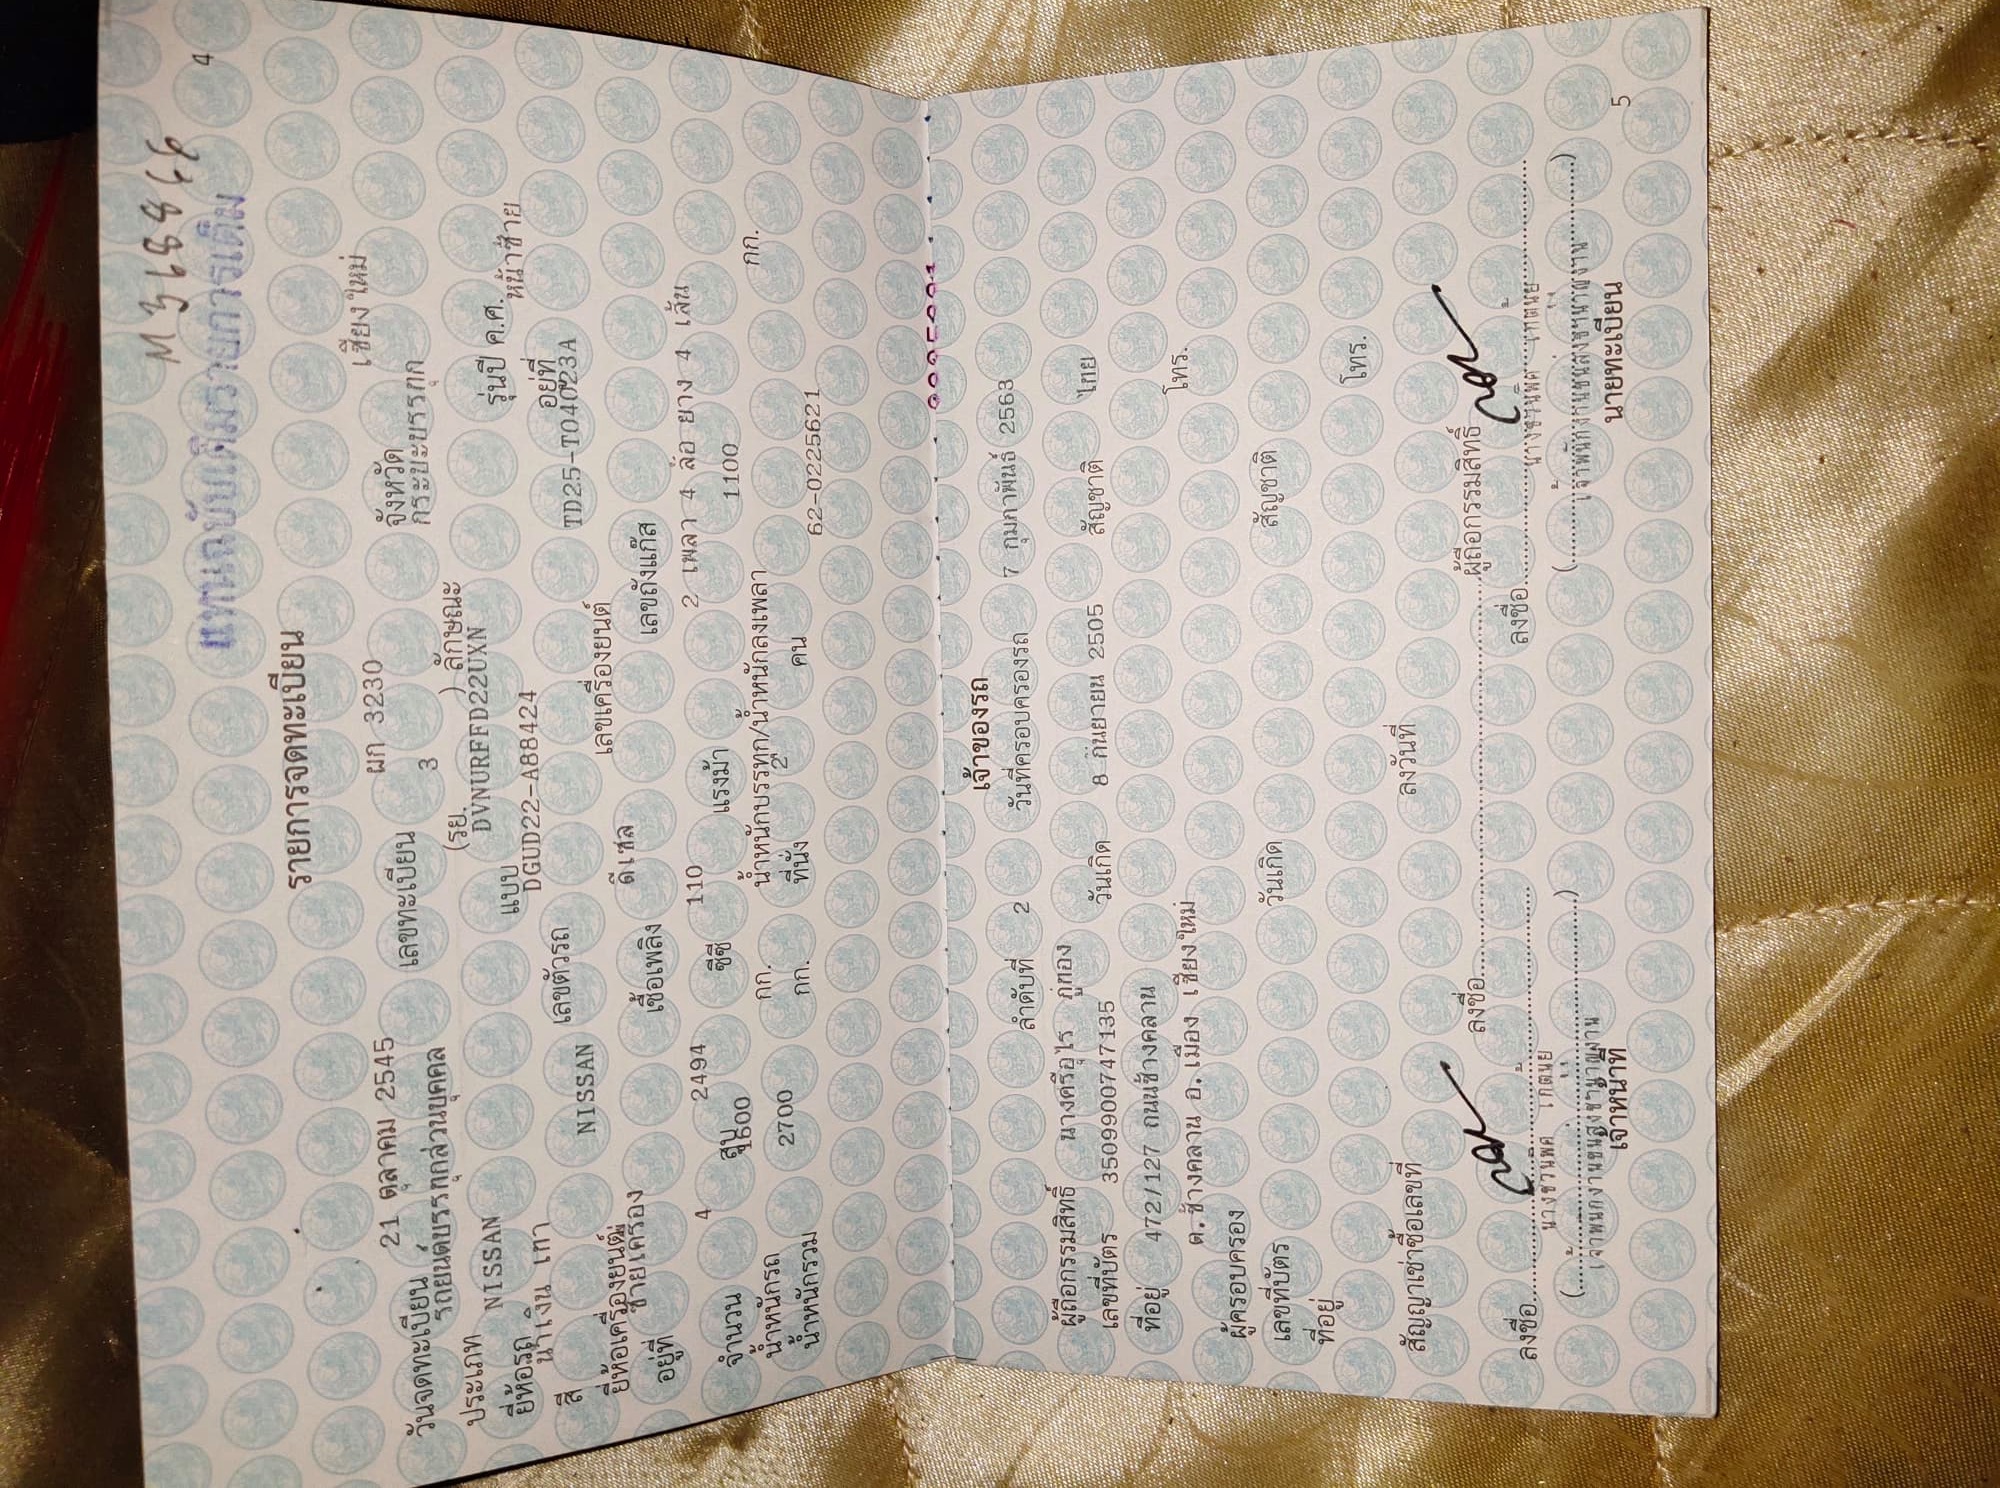 M 3688 66
แทนฉบับเดิมรายการเดิม
4
รายการจดทะเบียน
วันจดทะเบียน 21 ตุลาคม 2545 เลขทะเบียน ผก 3230 จังหวัด เชียงใหม่
ประเภท รถยนต์บรรทุกส่วนบุคคล (รย. 3 ) ลักษณะ กระบะบรรทุก
ยี่ห้อรถ NISSAN แบบ DVNURFFD22UXN รุ่นปี ค.ศ.
สี น้ำเงิน เทา เลขตัวรถ DGUD22-A88424 อยู่ที่ หน้าซ้าย
ยี่ห้อเครื่องยนต์ NISSAN เลขเครื่องยนต์ TD25-T04023A
อยู่ที่ ซ้ายเครื่อง เชื้อเพลิง ดีเซล เลขถังแก๊ส
จำนวน 4 สูบ 2494 ซีซี 110 แรงม้า 2 เพลา 4 ล้อ ยาง 4 เส้น
น้ำหนักรถ 1600 กก. น้ำหนักบรรทุก/น้ำหนักลงเพลา 1100 กก.
น้ำหนักรวม 2700 กก. ที่นั่ง 2 คน
62-0225621
เจ้าของรถ
ลำดับที่ 2 วันที่ครอบครองรถ 7 กุมภาพันธ์ 2563
ผู้ถือกรรมสิทธิ์ นางศรีอุไร ภู่ทอง
เลขที่บัตร 3509900747135 วันเกิด 8 กันยายน 2505 สัญชาติ ไทย
ที่อยู่ 472/127 ถนนช้างคลาน
ต.ช้างคลาน อ.เมือง เชียงใหม่ โทร.
ผู้ครอบครอง
เลขที่บัตร วันเกิด สัญชาติ
ที่อยู่ โทร.
สัญญาเช่าซื้อเลขที่ ลงวันที่
ลงชื่อ ผู้ถือกรรมสิทธิ์
ลงชื่อ ลงชื่อ
เจ้าหน้าที่ นายทะเบียน
5